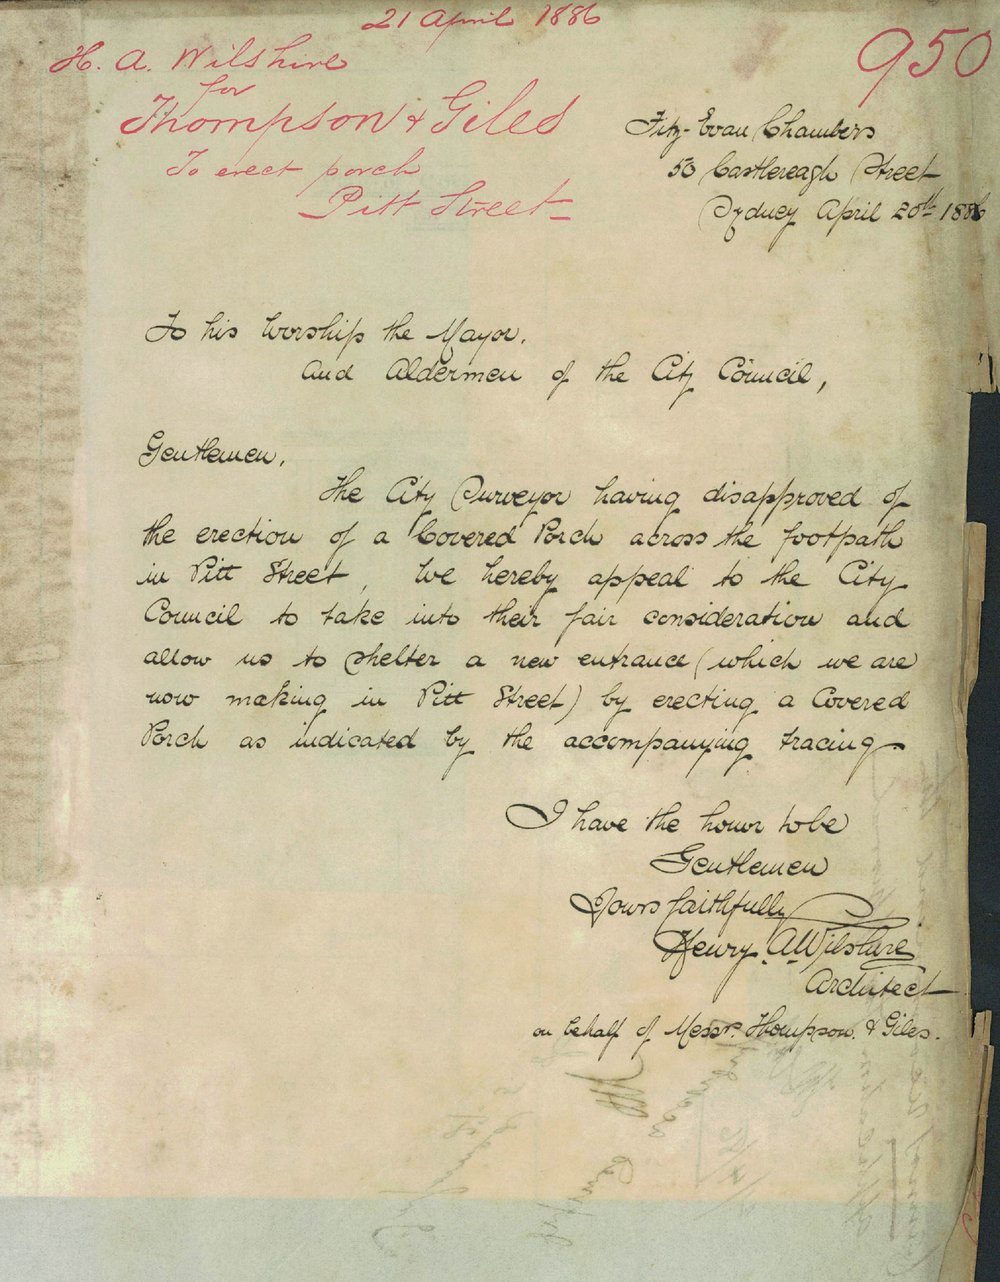 21 April 1886
950
H. A. Wilshire
for
Thompson & Giles
To erect porch
Pitt Street
Fitz-Evan Chambers
53 Castlereagh Street
Sydney April 20th 1886
To his Worship the Mayor.
and Aldermen of the City Council,
Gentlemen.
The City Surveyor having disapproved of
the erection of a Covered Porch across the footpath
in Pitt Street, We hereby appeal to the City
Council to take into their fair consideration and
allow us to shelter a new entrance (which we are
now making in Pitt Street) by erecting a Covered
Porch as indicated by the accompanying tracing
I have the honor to be
Gentlemen
Yours faithfully
Henry A Wilshire
Architect
on behalf of Messrs. Thompson & Giles.